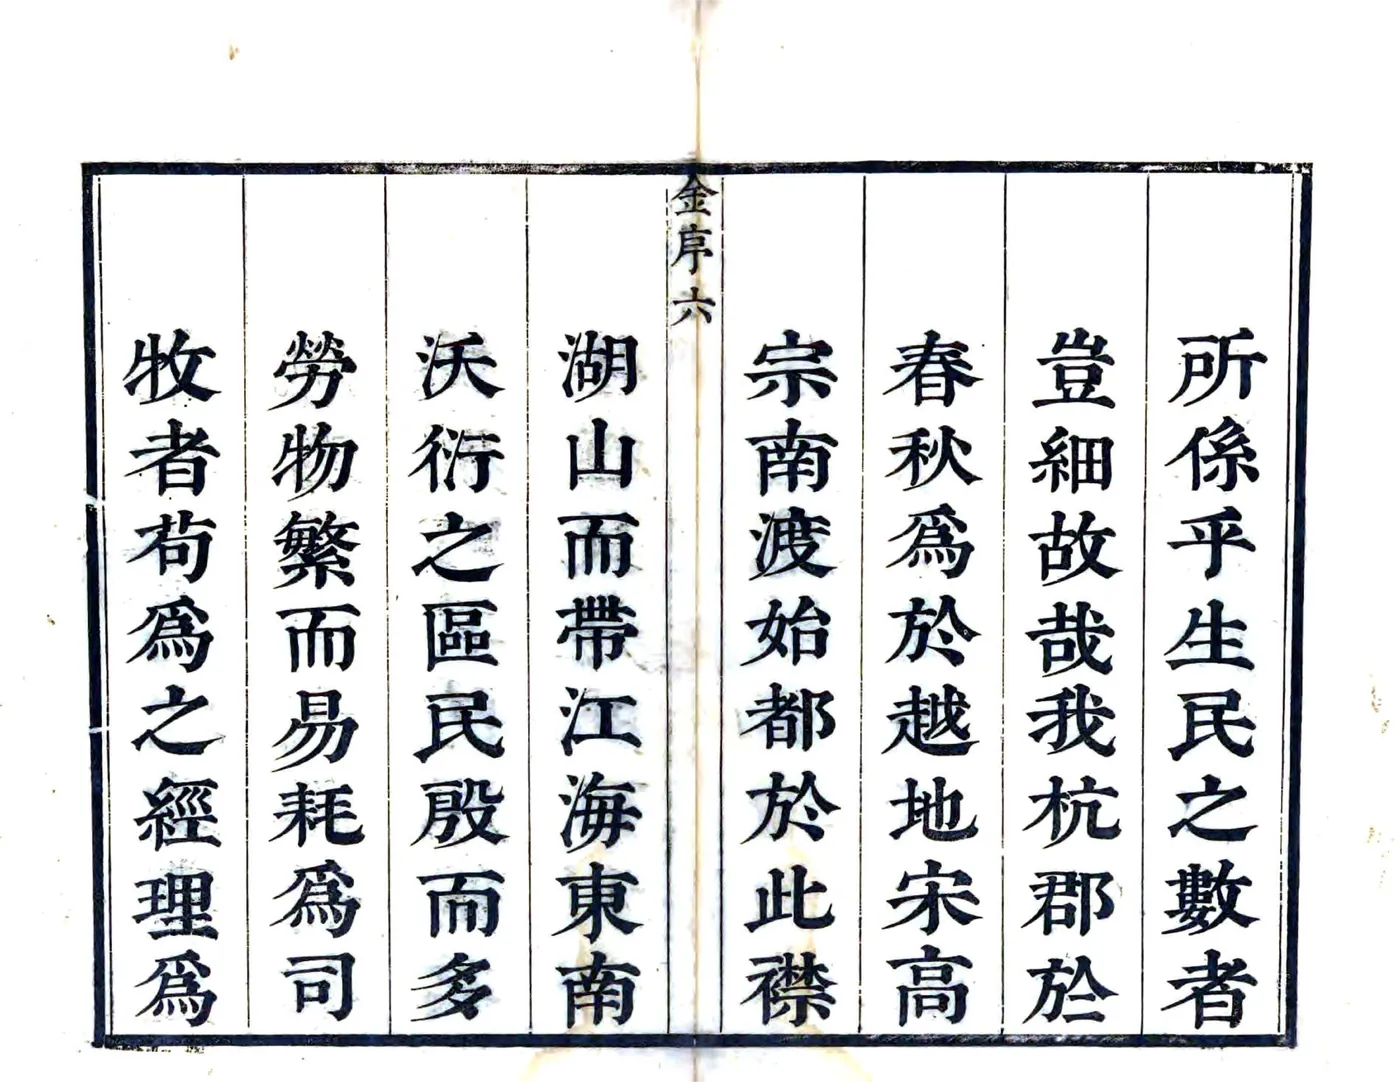 所係乎生民之數者
豈細故哉我杭郡於
春秋爲於越地宋高
宗南渡始都於此襟
金序六
湖山而帶江海東南
沃衍之區民殷而多
勞物繁而易耗爲司
牧者苟爲之經理爲